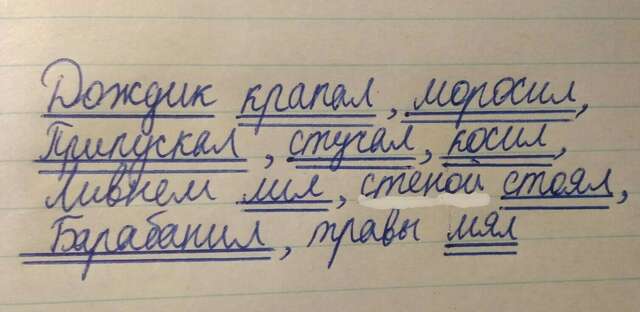 Дождик крапал, моросил,
Припускал, стучал, косил,
Ливнем лил, стеной стоял,
Барабанил, травы мял